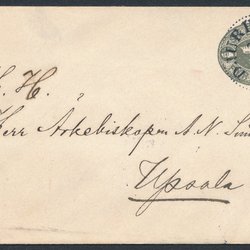 S. H.
Herr Ärkebiskopen A. N. Sun
Upsala